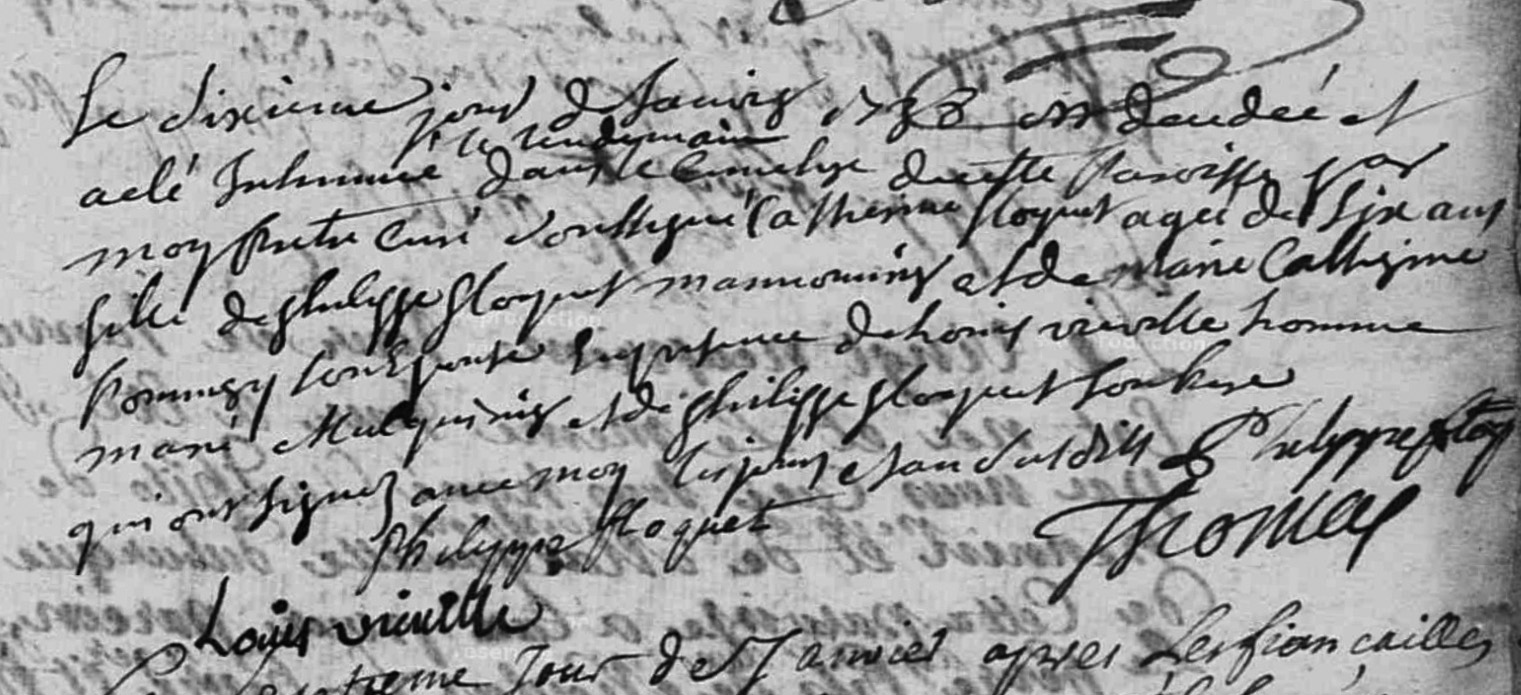 Le dixieme jour de Janvier 1738 est decedée et
et le lendemain
a eté Inhumée dans le Cimetiere de cette Paroisse par
moy Pretre Curé soussigné Catherine floquet agée de Six ans
fille de philippe floquet manouvrier et de Marie Catherine
son Epouse En presence de Louis vieville homme
marié Mulquinier et de philippe floquet son Pere
qui ont signez avec moy les jour et an susdits Philippe floq
Philippe floquet Thomas
Louis vieville
jour de Janvier apres Les fiancailles